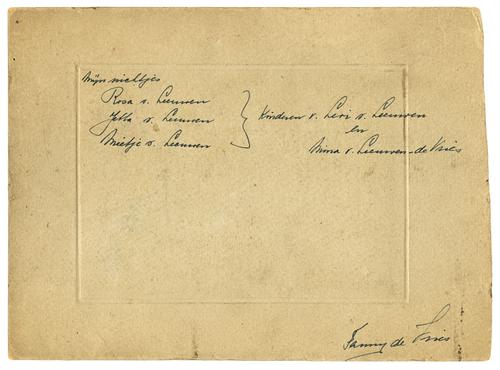 Mijn nichtjes
Rosa v. Leeuwen
Jetta v. Leeuwen
Mietje v. Leeuwen
} Kinderen v. Levi v. Leeuwen
en
Mina v. Leeuwen-de Vries
Fanny de Vries